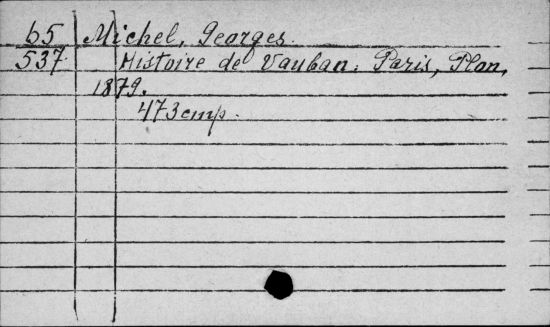 b5 Michel, Georges.
537 Histoire de Vauban. Paris, Plon,
1879.
473 стр.